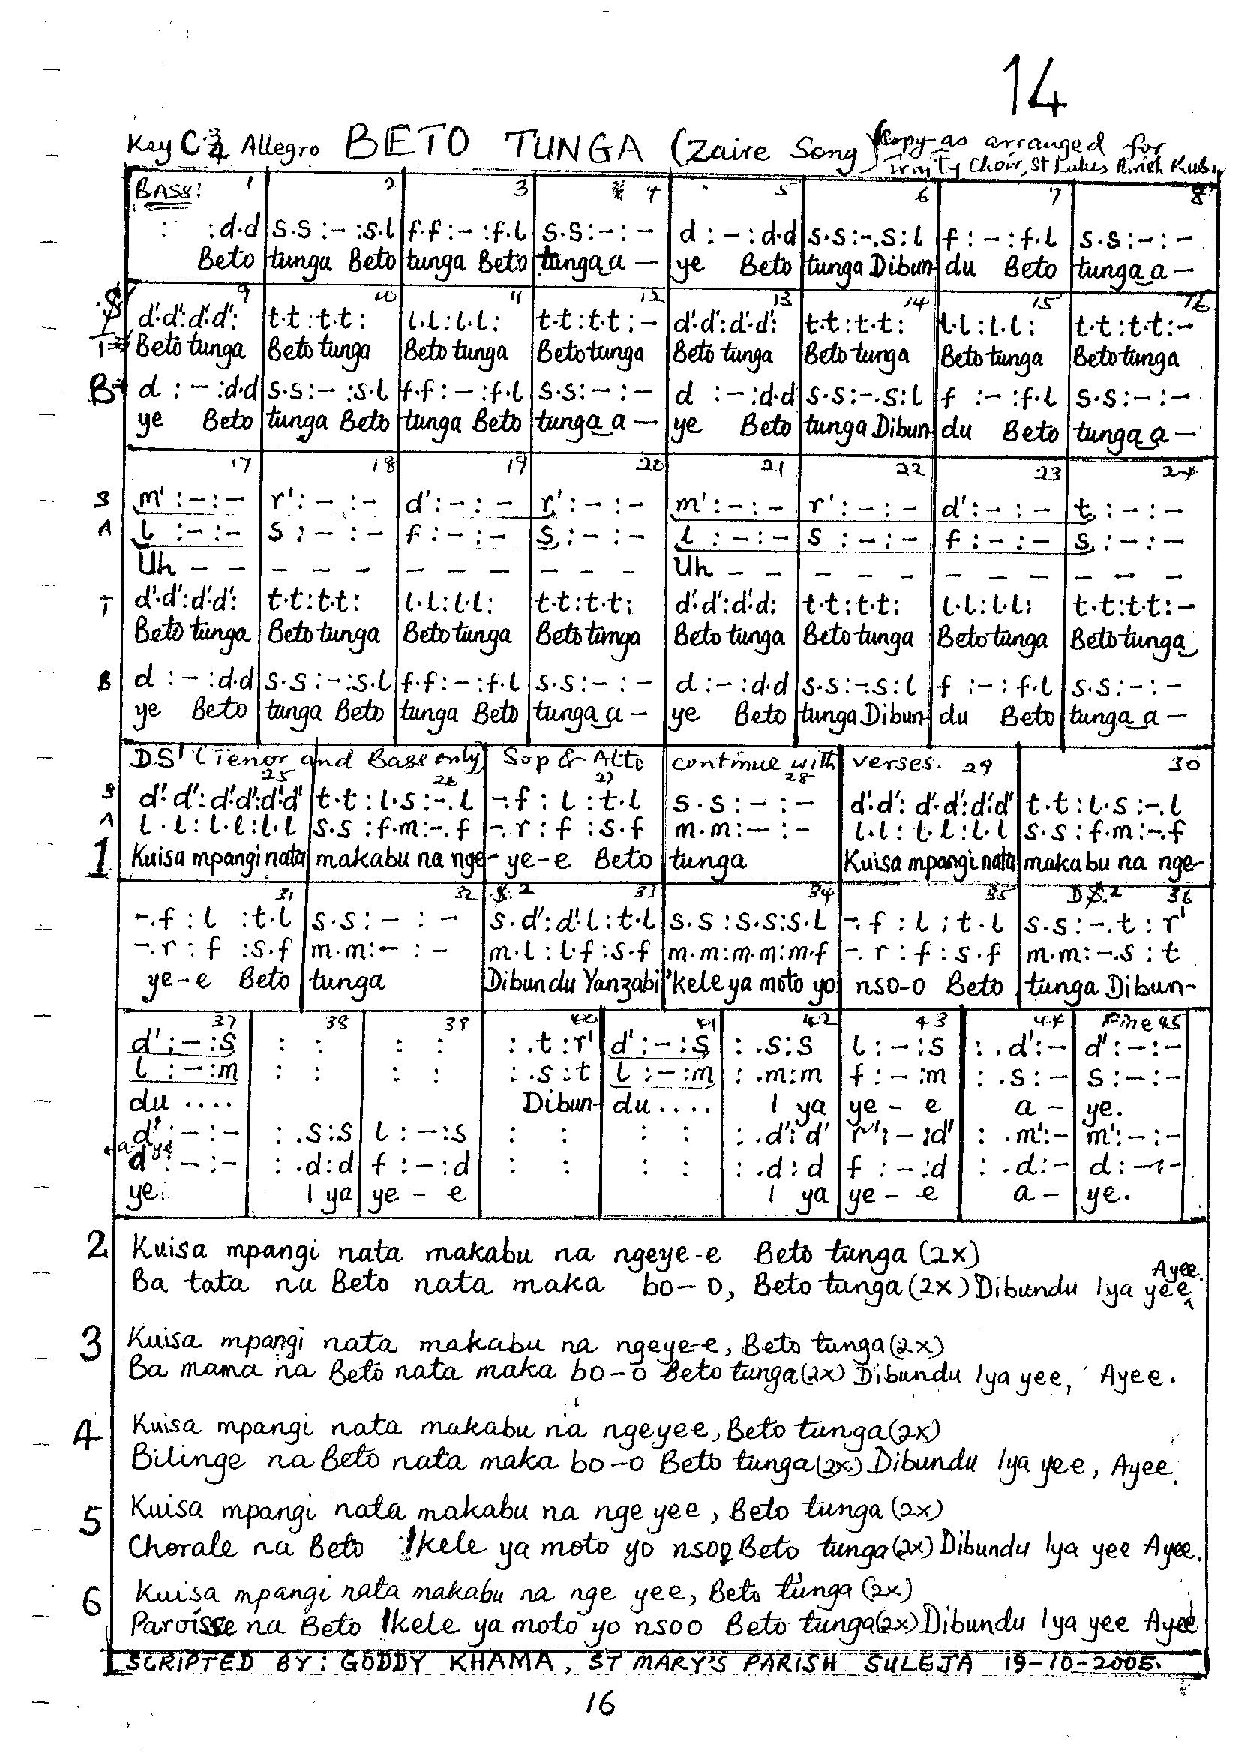 14
Key C 3/4 Allegro BETO TUNGA (Zaire Song) (Copy as arranged for
Trinity Choir, St Lukes Parish Kubw
BASS: 1 2 3 4 5 6 7 8
: :d.d|s.s:-:s.l|f.f:-:f.l|s.s:-:-|d:-:d.d|s.s:-.s:l|f:-:f.l|s.s:-:-
Beto tunga Beto tunga Beto tunga a- ye Beto tunga Dibun du Beto tunga a-
9 10 11 12 13 14 15 16
T d'.d':d'.d':|t.t:t.t:|l.l:l.l:|t.t:t.t:-|d'.d':d'.d':|t.t:t.t:|l.l:l.l:|t.t:t.t:-
Beto tunga Beto tunga Beto tunga Beto tunga Beto tunga Beto tunga Beto tunga Beto tunga
B d:-:d.d|s.s:-:s.l|f.f:-:f.l|s.s:-:-|d:-:d.d|s.s:-.s:l|f:-:f.l|s.s:-:-
ye Beto tunga Beto tunga Beto tunga a- ye Beto tunga Dibun du Beto tunga a-
17 18 19 20 21 22 23 24
S m':-:-|r':-:-|d':-:-|r':-:-|m':-:-|r':-:-|d':-:-|t:-:-
A l:-:-|s:-:-|f:-:-|s:-:-|l:-:-|s:-:-|f:-:-|s:-:-
Uh - - - - - - - - - - - Uh - - - - - - - - - - -
T d'.d':d'.d':|t.t:t.t:|l.l:l.l:|t.t:t.t:|d'.d':d'.d:|t.t:t.t:|l.l:l.l:|t.t:t.t:-
Beto tunga Beto tunga Beto tunga Beto tunga Beto tunga Beto tunga Beto tunga Beto tunga
B d:-:d.d|s.s:-:s.l|f.f:-:f.l|s.s:-:-|d:-:d.d|s.s:-.s:l|f:-:f.l|s.s:-:-
ye Beto tunga Beto tunga Beto tunga a- ye Beto tunga Dibun du Beto tunga a-
D.S' (Tenor and Base only) Sop & Alto continue with verses. 29 30
25 26 27 28
S d'.d':d'.d':d'.d'|t.t:l.s:-.l|-.f:l:t.l|s.s:-:-|d'.d':d'.d':d'.d'|t.t:l.s:-.l
A l.l:l.l:l.l|s.s:f.m:-.f|-.r:f:s.f|m.m:-:-|l.l:l.l:l.l|s.s:f.m:-.f
1 Kuisa mpangi nata makabu na nge-ye-e Beto tunga Kuisa mpangi nata makabu na nge-
31 32 S.2 33 34 35 D.S.2 36
-.f:l:t.l|s.s:-:-|s.d':d'.l:t.l|s.s:s.s:s.l|-.f:l:t.l|s.s:-.t:r'
-.r:f:s.f|m.m:-:-|m.l:l.f:s.f|m.m:m.m:m.f|-.r:f:s.f|m.m:-.s:t
ye-e Beto tunga Dibundu Yanzabi 'kele ya moto yo nso-o Beto tunga Dibun-
37 38 39 40 41 42 43 44 Fine 45
d':-:s|: :|: :|:.t:r'|d':-:s|:.s:s|l:-:s|:.d':-|d':-:-
l:-:m|: :|: :|:.s:t|l:-:m|:.m:m|f:-:m|:.s:-|s:-:-
du .... Dibun- du .... I ya ye-e a- ye.
d':-:-|:.s:s|l:-:s|: :|: :|:.d':d'|r':-:d'|:.m':-|m':-:-
d:-:-|:.d:d|f:-:d|: :|: :|:.d:d|f:-:d|:.d:-|d:-:-
ye. I ya ye-e I ya ye-e a- ye.
2 Kuisa mpangi nata makabu na ngeye-e Beto tunga (2x)
Ba tata na Beto nata maka bo-o, Beto tunga (2x) Dibundu Iya yee Ayee.
3 Kuisa mpangi nata makabu na ngeye-e, Beto tunga (2x)
Ba mama na Beto nata maka bo-o Beto tunga (2x) Dibundu Iya yee, Ayee.
4 Kuisa mpangi nata makabu na ngeyee, Beto tunga (2x)
Bilinge na Beto nata maka bo-o Beto tunga (2x) Dibundu Iya yee, Ayee.
5 Kuisa mpangi nata makabu na nge yee, Beto tunga (2x)
Chorale na Beto Ikele ya moto yo nsoo Beto tunga (2x) Dibundu Iya yee Ayee.
6 Kuisa mpangi nata makabu na nge yee, Beto tunga (2x)
Paroisse na Beto Ikele ya moto yo nsoo Beto tunga (2x) Dibundu Iya yee Ayee
SCRIPTED BY: GODDY KHAMA, ST MARY'S PARISH SULEJA 19-10-2005.
16